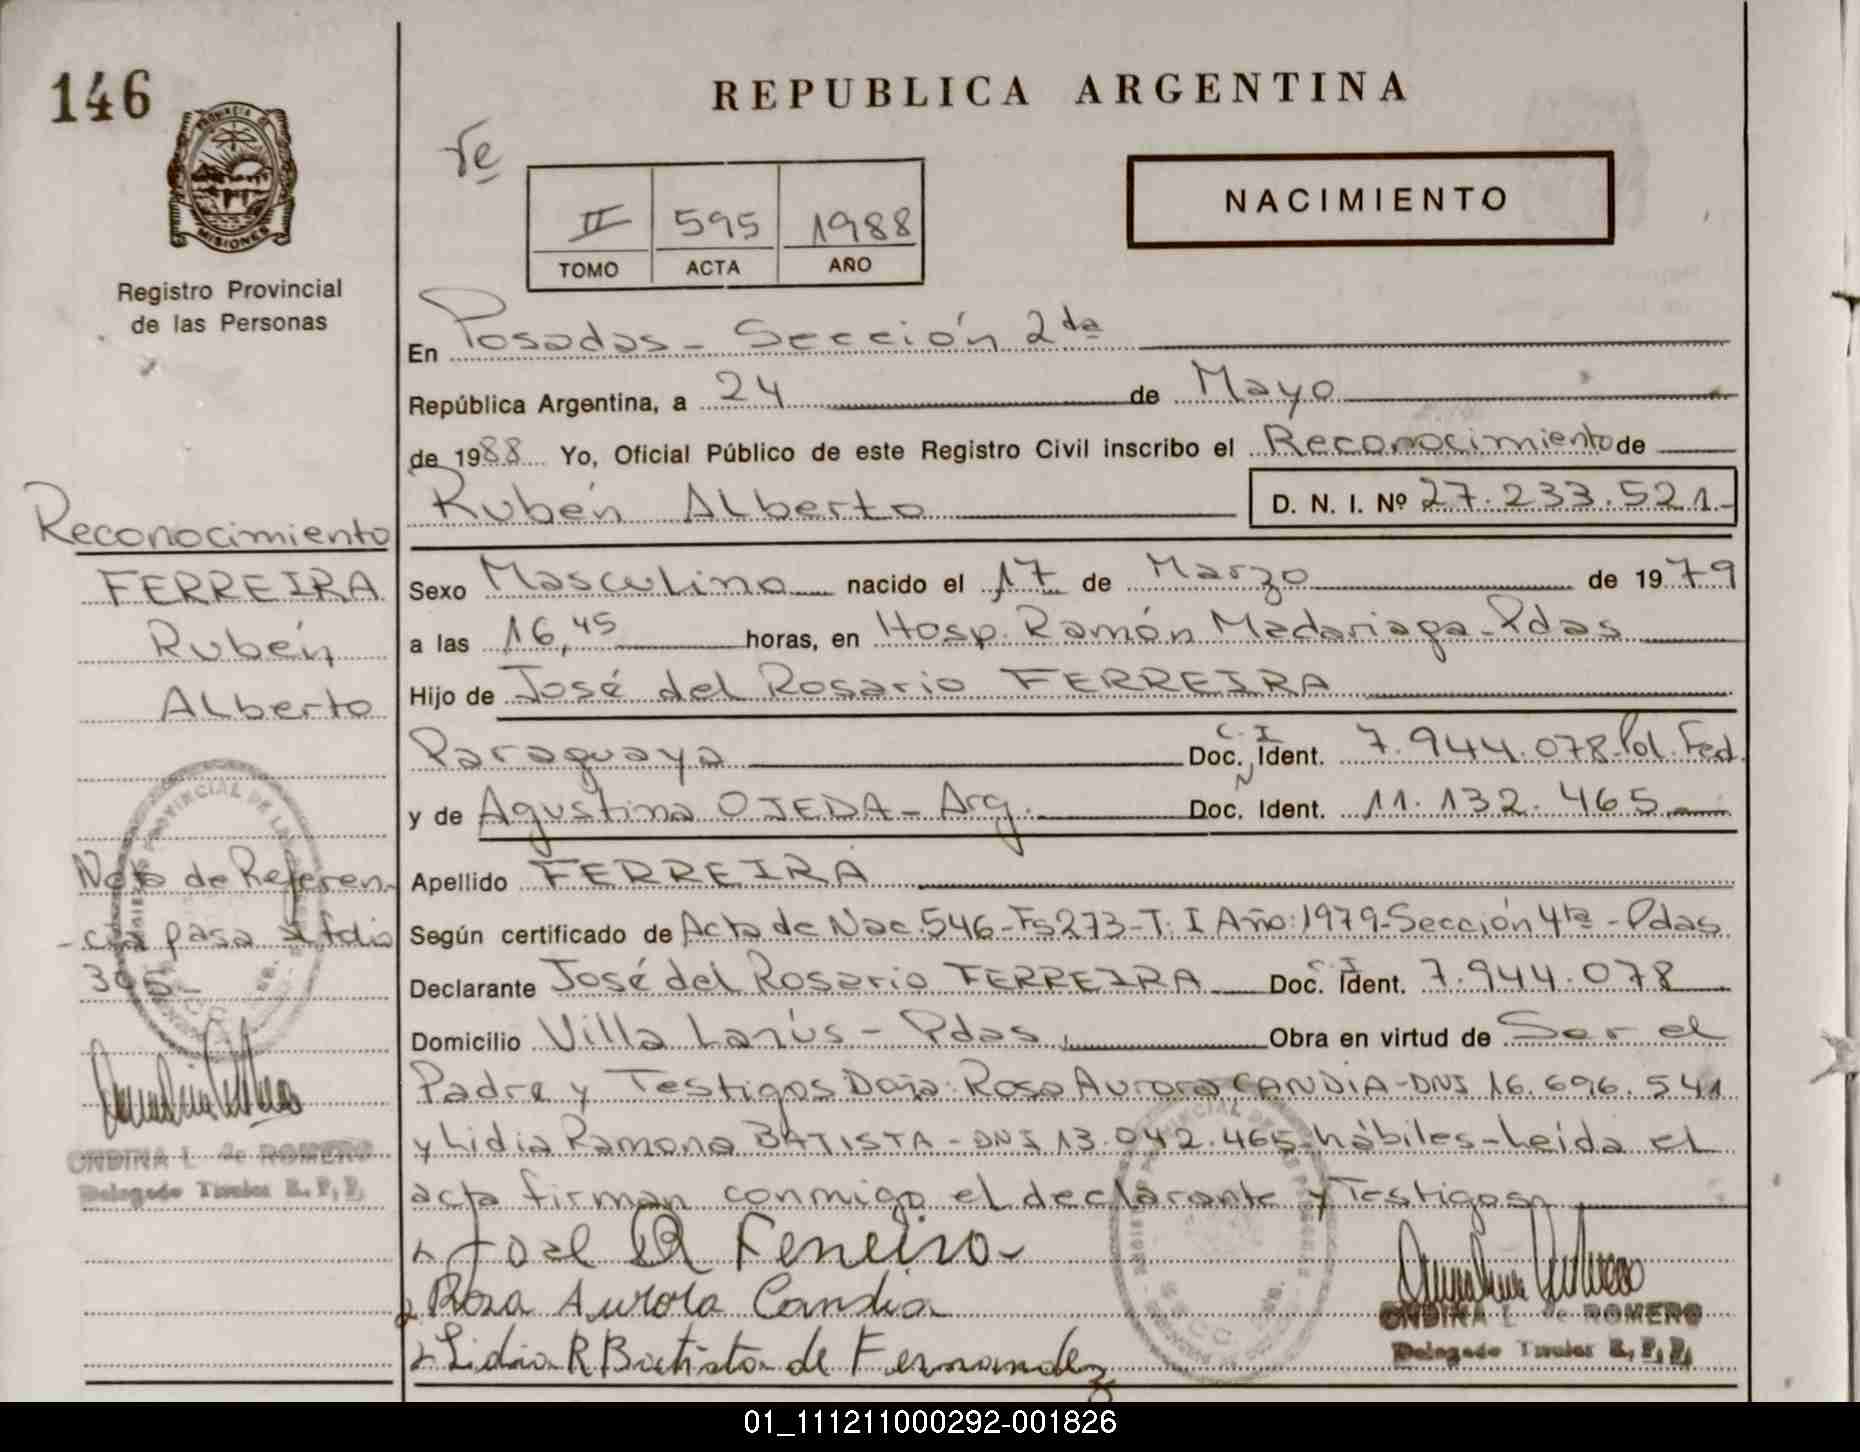 146
PROVINCIA DE
MISIONES
Registro Provincial
de las Personas
REPUBLICA ARGENTINA
NACIMIENTO
II 595 1988
TOMO ACTA AÑO
En Posadas - Sección 2da
República Argentina, a 24 de Mayo
de 1988 Yo, Oficial Público de este Registro Civil inscribo el Reconocimiento de
Rubén Alberto D. N. I. Nº 27.233.521.-
Sexo Masculino nacido el 17 de Marzo de 1979
a las 16,45 horas, en Hosp. Ramón Madariaga - Pdas
Hijo de José del Rosario FERREIRA
Paraguaya C.I Doc. Ident. 7.944.078-Pol. Fed.
y de Agustina OJEDA - Arg. Doc. N Ident. 11.132.465
Apellido FERREIRA
Según certificado de Acta de Nac. 546-Fs273-T. I Año: 1979-Sección 4ta - Pdas
Declarante José del Rosario FERREIRA C.I Doc. Ident. 7.944.078
Domicilio Villa Lanús - Pdas. Obra en virtud de Ser el
Padre y Testigos Doña: Rosa Aurora CANDIA-DNI 16.696.541
y Lidia Ramona BATISTA - DNI 13.042.465-hábiles-Leída el
acta firman conmigo el declarante y Testigos
Rosa Aurora Candia
Lidia R Batista de Fernandez
ONDINA L. de ROMERO
Delegado Titular R. P. P.
Reconocimiento
FERREIRA
Rubén
Alberto
Nota de Referen-
-cia pasa al folio
305-
ONDINA L. de ROMERO
Delegado Titular R. P. P.
01_111211000292-001826